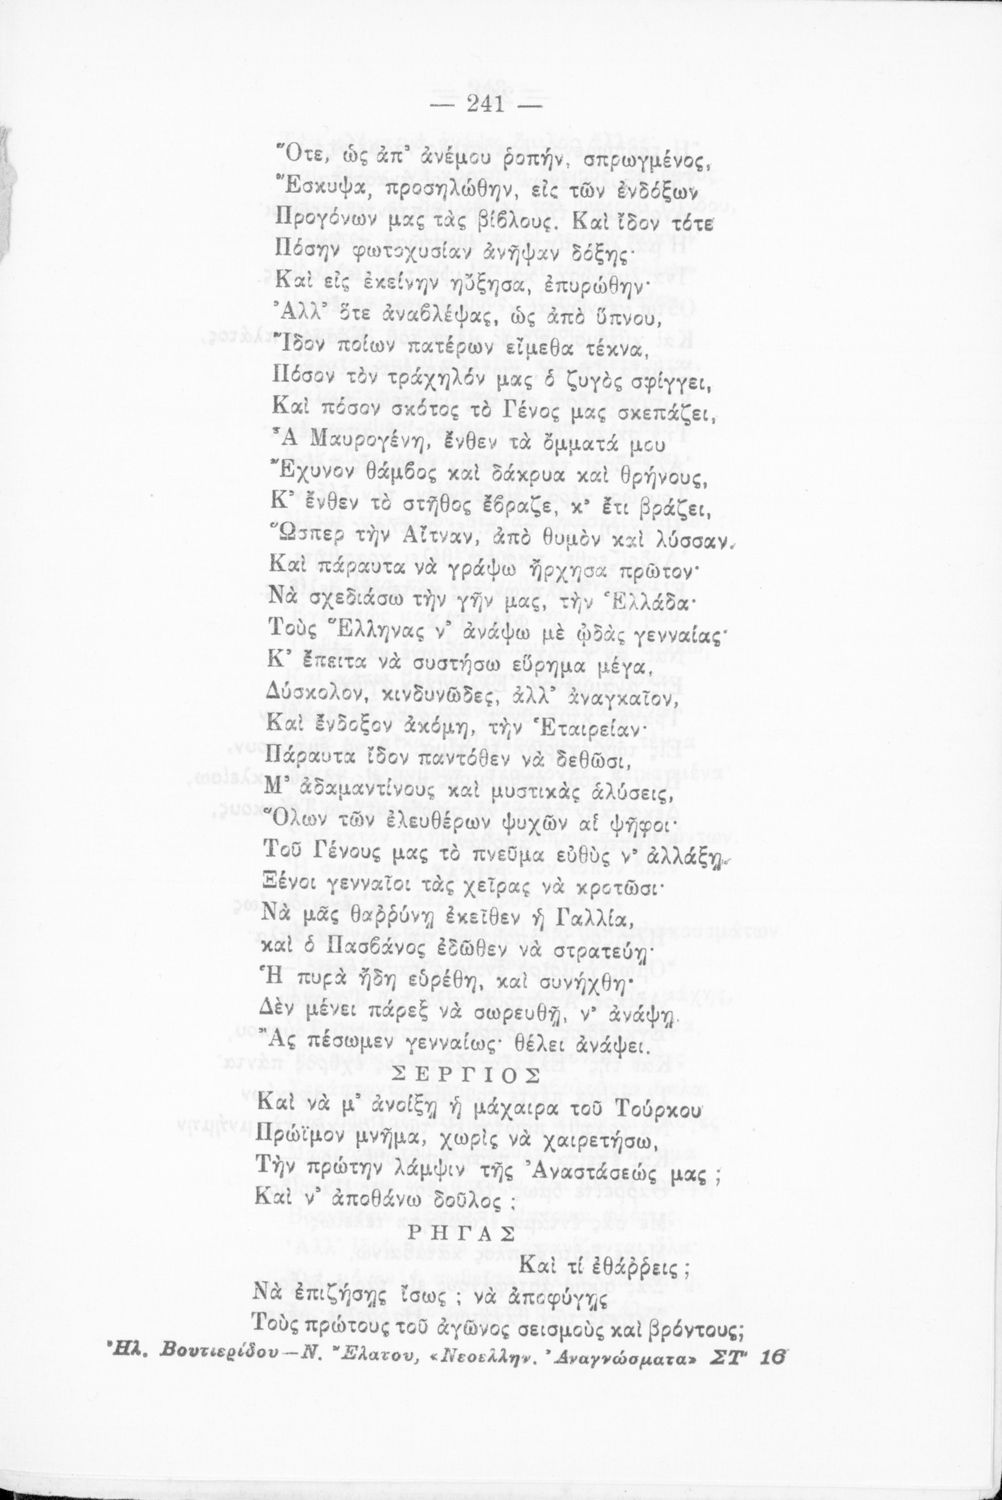 — 241 —
Ὅτε, ὡς ἀπ' ἀνέμου ῥοπήν, σπρωγμένος,
Ἔσκυψα, προσηλώθην, εἰς τῶν ἐνδόξων
Προγόνων μας τὰς βίβλους. Καὶ ἴδον τότε
Πόσην φωτοχυσίαν ἀνῆψαν δόξης·
Καὶ εἰς ἐκείνην ηὔξησα, ἐπυρώθην·
Ἀλλ' ὅτε ἀναβλέψας, ὡς ἀπὸ ὕπνου,
Ἴδον ποίων πατέρων εἴμεθα τέκνα,
Πόσον τὸν τράχηλόν μας ὁ ζυγὸς σφίγγει,
Καὶ πόσον σκότος τὸ Γένος μας σκεπάζει,
Ἄ Μαυρογένη, ἔνθεν τὰ ὄμματά μου
Ἔχυνον θάμβος καὶ δάκρυα καὶ θρήνους,
Κ' ἔνθεν τὸ στῆθος ἔβραζε, κ' ἔτι βράζει,
Ὥσπερ τὴν Αἴτναν, ἀπὸ θυμὸν καὶ λύσσαν.
Καὶ πάραυτα νὰ γράψω ἤρχησα πρῶτον·
Νὰ σχεδιάσω τὴν γῆν μας, τὴν Ἑλλάδα·
Τοὺς Ἕλληνας ν' ἀνάψω μὲ ᾠδὰς γενναίας·
Κ' ἔπειτα νὰ συστήσω εὕρημα μέγα,
Δύσκολον, κινδυνῶδες, ἀλλ' ἀναγκαῖον,
Καὶ ἔνδοξον ἀκόμη, τὴν Ἑταιρείαν·
Πάραυτα ἴδον παντόθεν νὰ δεθῶσι,
Μ' ἀδαμαντίνους καὶ μυστικὰς ἁλύσεις,
Ὅλων τῶν ἐλευθέρων ψυχῶν αἱ ψῆφοι·
Τοῦ Γένους μας τὸ πνεῦμα εὐθὺς ν' ἀλλάξῃ.
Ξένοι γενναῖοι τὰς χεῖρας νὰ κροτῶσι·
Νὰ μᾶς θαῤῥύνῃ ἐκεῖθεν ἡ Γαλλία,
καὶ ὁ Πασβάνος ἐδῶθεν νὰ στρατεύῃ·
Ἡ πυρὰ ἤδη εὑρέθη, καὶ συνήχθη·
Δὲν μένει πάρεξ νὰ σωρευθῇ, ν' ἀνάψῃ.
Ἂς πέσωμεν γενναίως· θέλει ἀνάψει.
ΣΕΡΓΙΟΣ
Καὶ νὰ μ' ἀνοίξῃ ἡ μάχαιρα τοῦ Τούρκου
Πρώϊμον μνῆμα, χωρὶς νὰ χαιρετήσω,
Τὴν πρώτην λάμψιν τῆς Ἀναστάσεώς μας ;
Καὶ ν' ἀποθάνω δοῦλος ;
ΡΗΓΑΣ
Καὶ τί ἐθάῤῥεις ;
Νὰ ἐπιζήσῃς ἴσως ; νὰ ἀποφύγῃς
Τοὺς πρώτους τοῦ ἀγῶνος σεισμοὺς καὶ βρόντους;
Ἠλ. Βουτιερίδου—Ν. Ἔλατου, «Νεοελλην. Ἀναγνώσματα» ΣΤ' 16